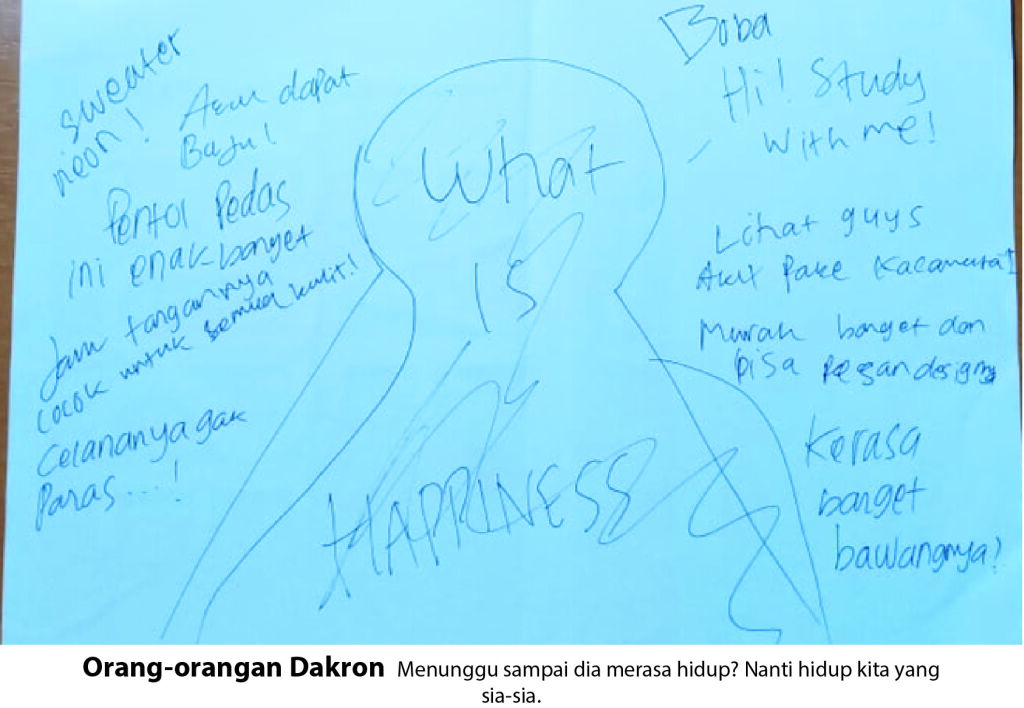 sweater
neon!
Aku dapat
Baju!
Pentol Pedas
ini enak banget
Jam tangannya
cocok untuk semua kulit!
Celananya gak
Panas...!
What
IS
HAPPINESS
Boba
Hi! Study
With me!
Lihat guys
Aku Pake Kacamata!
Murah banget dan
bisa Pesan designny
Kerasa
banget
bawangnya?
Orang-orangan Dakron Menunggu sampai dia merasa hidup? Nanti hidup kita yang
sia-sia.